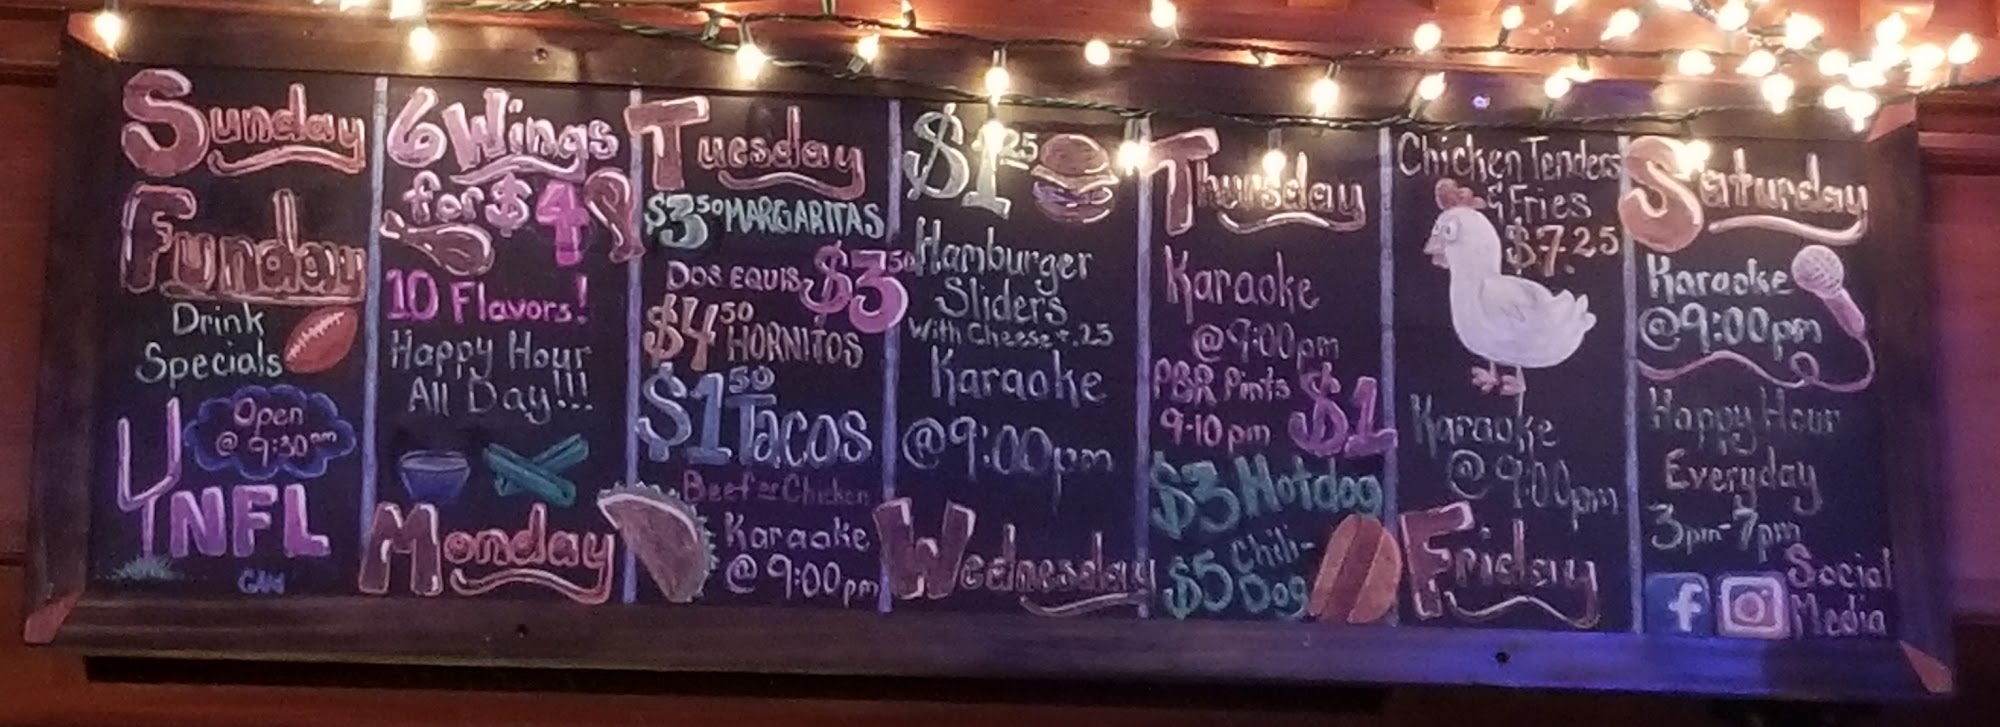 Sunday
Funday
Drink
Specials
Open
@ 9:30am
NFL
6 Wings
for $4
10 Flavors!
Happy Hour
All Day!!!
Monday
Tuesday
$3.50 MARGARITAS
DOS EQUIS $3.50
$4.50 HORNITOS
$1.50 TACOS
Beef or Chicken
Karaoke
@ 9:00pm
$1.25
Hamburger
Sliders
With Cheese +.25
Karaoke
@9:00pm
Wednesday
Thursday
Karaoke
@9:00pm
PBR Pints $1
9-10pm
$3 Hotdog
$5 Chili-
Dog
Chicken Tenders
& Fries
$7.25
Karaoke
@ 9:00pm
Friday
Saturday
Karaoke
@9:00pm
Happy Hour
Everyday
3pm-7pm
Social
Media